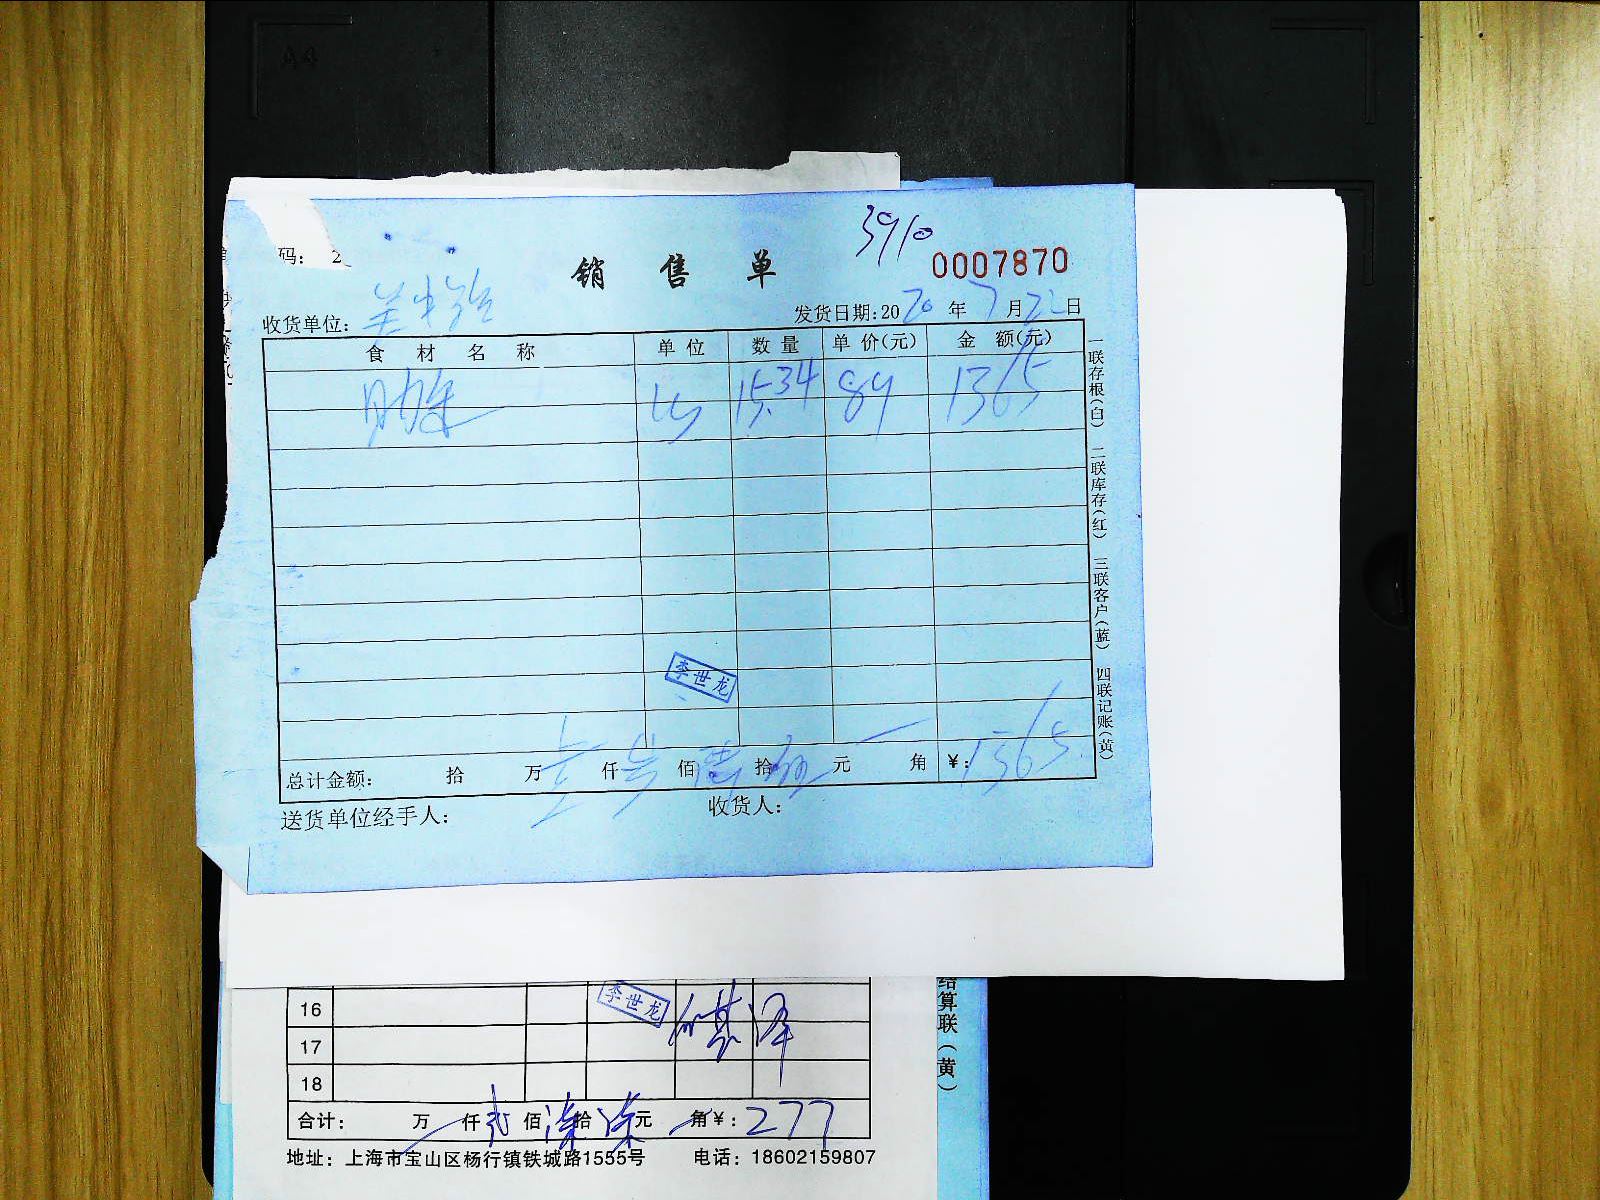 3910
码： 2
销 售 单 0007870
收货单位： 发货日期：2020 年 7 月 22 日
食 材 名 称 单 位 数 量 单 价(元) 金 额(元)
15.34 89 1365
李世龙
总计金额： 拾 万 壹 仟 叁 佰 陆 拾 伍 元 角 ¥：1365
送货单位经手人： 收货人：
一联存根(白) 二联库存(红) 三联客户(蓝) 四联记账(黄)
16 李世龙
17
18
合计： 万 仟 贰 佰 柒 拾 柒 元 角 ¥：277
地址：上海市宝山区杨行镇铁城路1555号 电话：18602159807
结算联（黄）